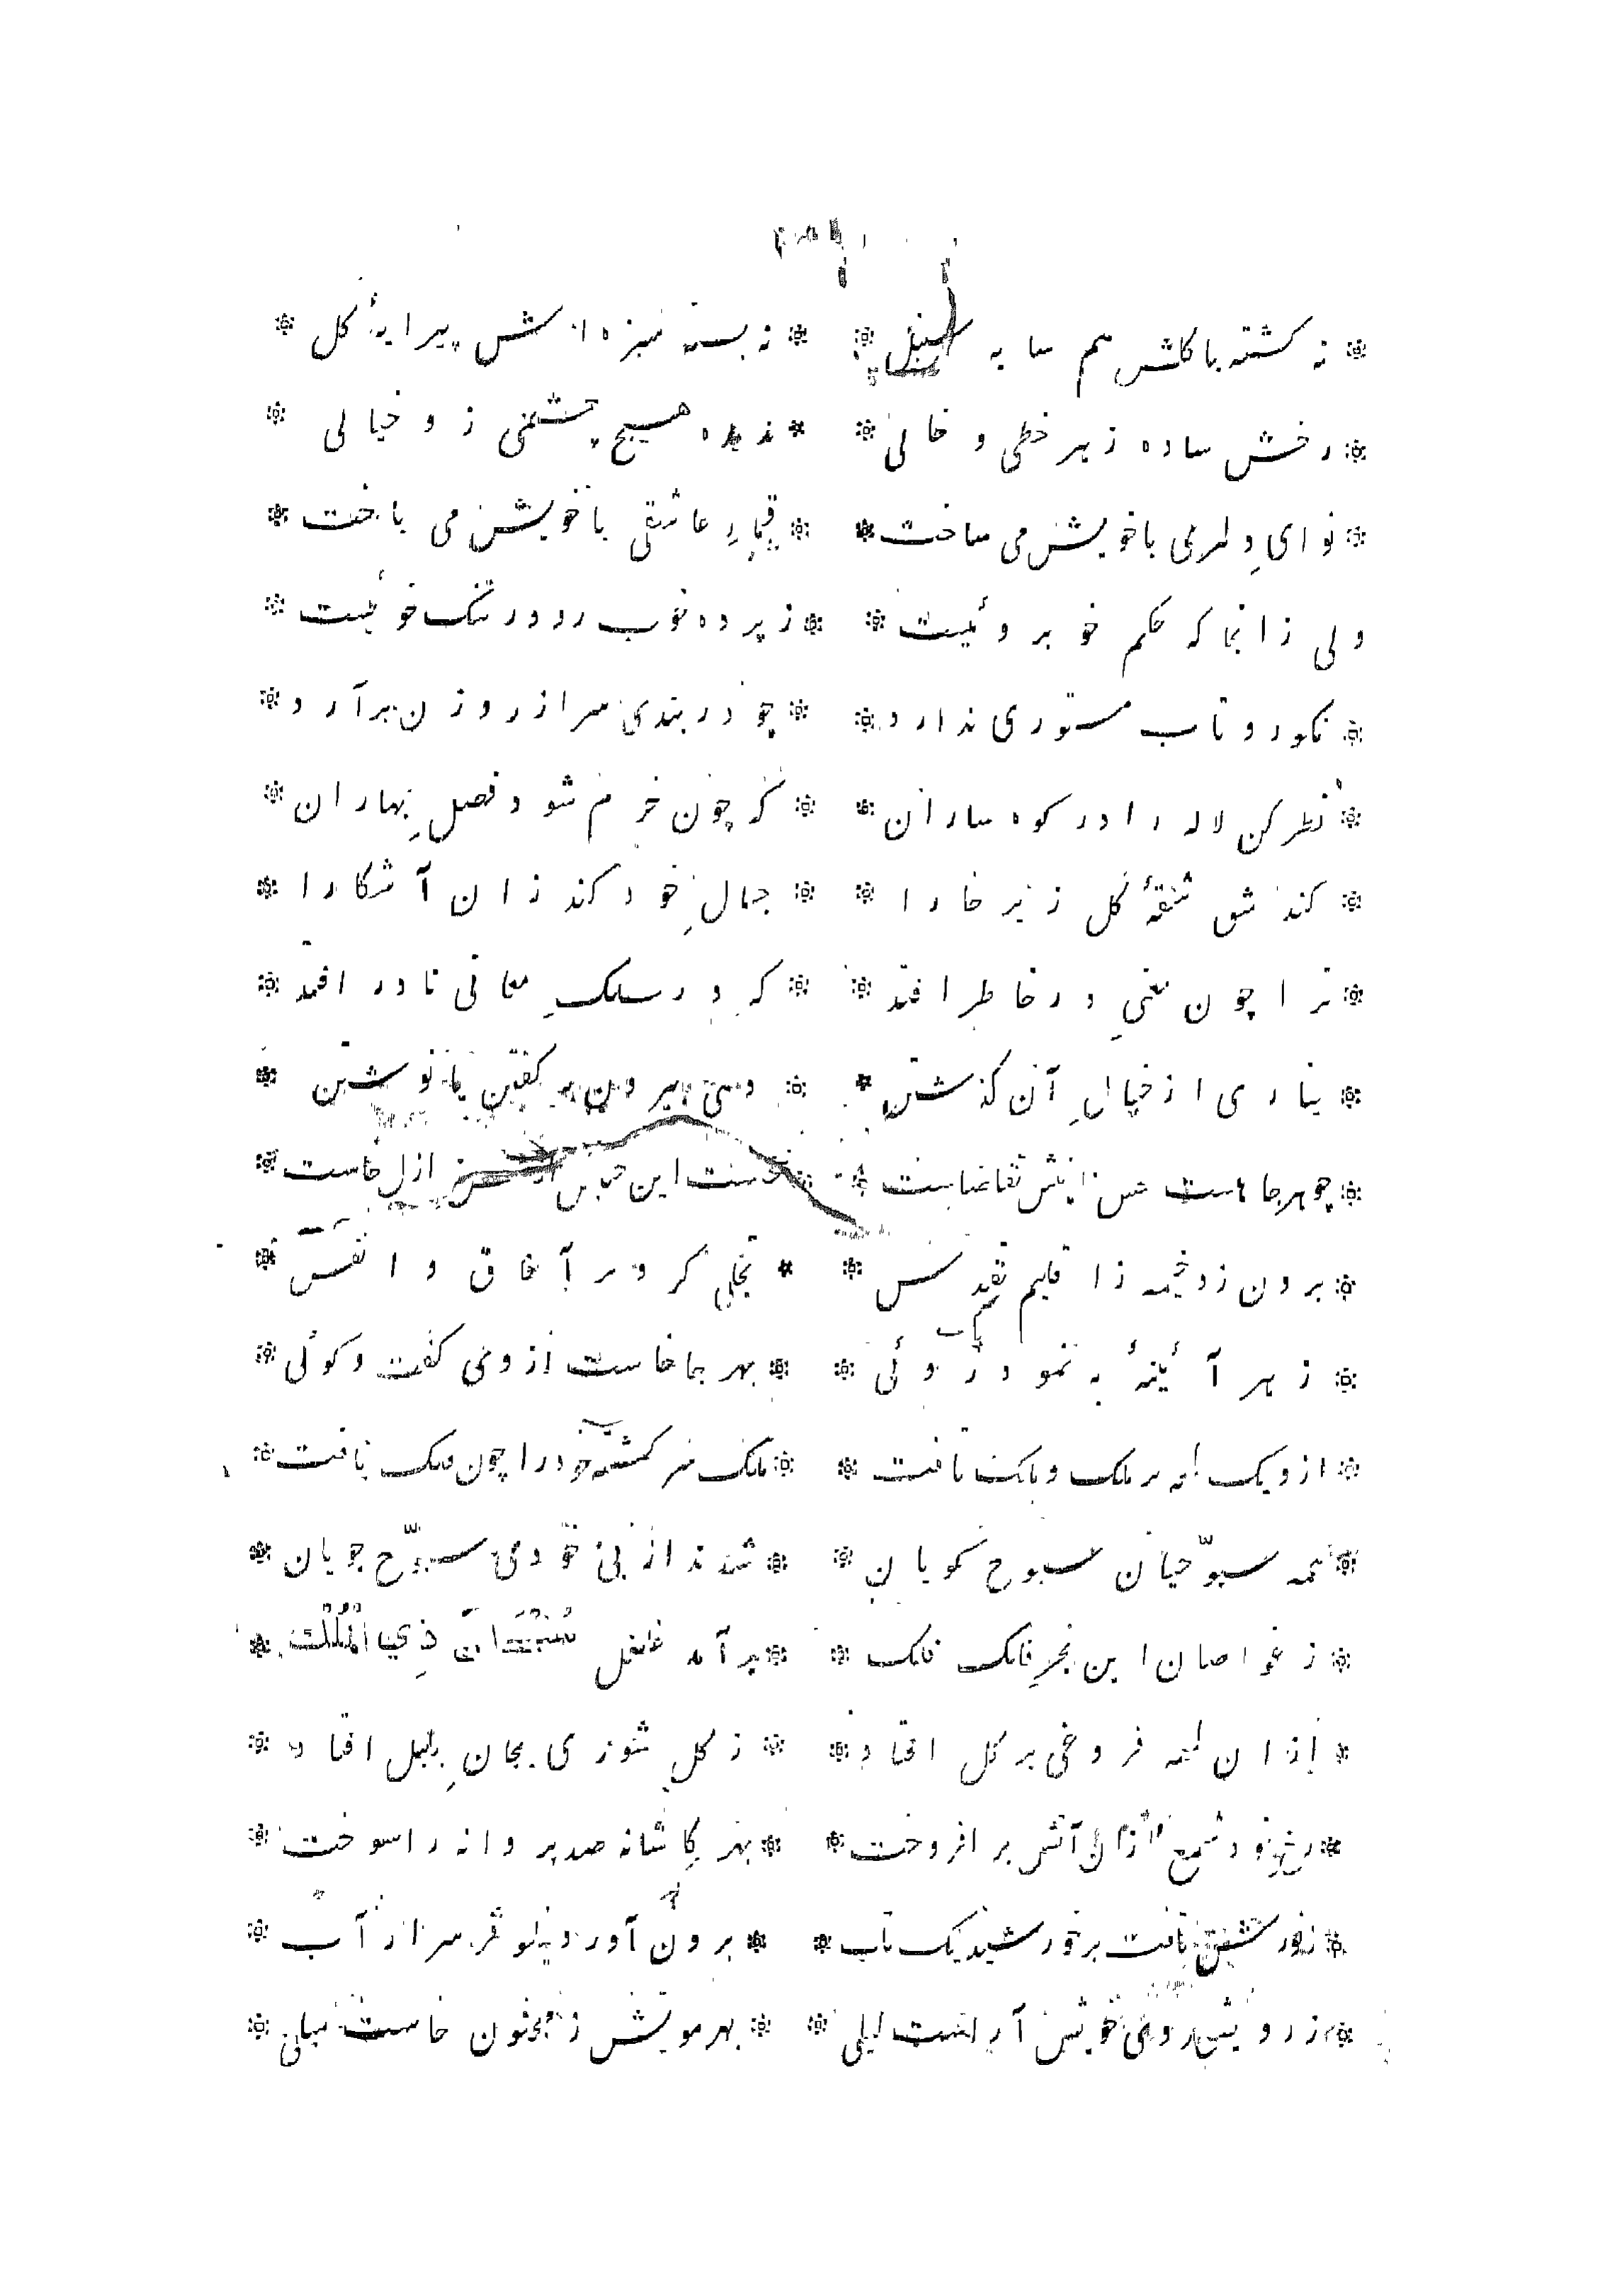 * نه گشته با گلش هم سایه سنبل * * نه بسته سبزه اش پیرایهٔ گل *
* رخش ساده ز هر خطی و خالی * * ندیده هیچ چشمی زو خیالی *
* نوایِ دلبری با خویش می ساخت * * قمارِ عاشقی با خویش می باخت *
ولی زانجا که حکم خوبروئیست * * ز پرده خوب رو در تنگ خوئیست *
* نکو رو تاب مستوری ندارد * * چو در بندی سر از روزن برآرد *
* نظر کن لاله را در کوه ساران * * که چون خرم شود فصلِ بهاران *
* کند شق شقهٔ گل زیر خارا * * جمالِ خود کند زان آشکارا *
* ترا چون معنیِ در خاطر افتد * * که در سلکِ معانی نادر افتد *
* نیاری از خیالِ آن گذشتن * * دهی بیرون به گفتن یا نوشتن *
* چو هرجا هست حسن اینش تقاضاست * * نخست این جنبش از حسن ازل خاست *
* برون زد خیمه ز اقلیم تقدس * * تجلی کرد بر آفاق و انفس *
* ز هر آئینهٔ بنمود روئی * * بهر جا خاست از وی گفت و گوئی *
* ازو یک لمعه بر ملک و ملک تافت * * ملک سرگشته خود را چون فلک یافت *
* همه سبوّحیان سبوح گویان * * شدند از بی خودی سبّوح جویان *
* ز غواصان این بحرِ فلک فلک * * برآمد غلغل سُبْحَانَ ذِي الْمُلْك *
* ازان لمعه فروغی بر گل افتاد * * ز گل شوری بجانِ بلبل افتاد *
* رخ خود شمع زان آتش برافروخت * * بهر کاشانه صد پروانه را سوخت *
* ز نورش تافت بر خورشید یک تاب * * برون آورد نیلوفر سر از آب *
* ز رویش روی خویش آراست لیلی * * بهر مویش ز مجنون خاست میلی *